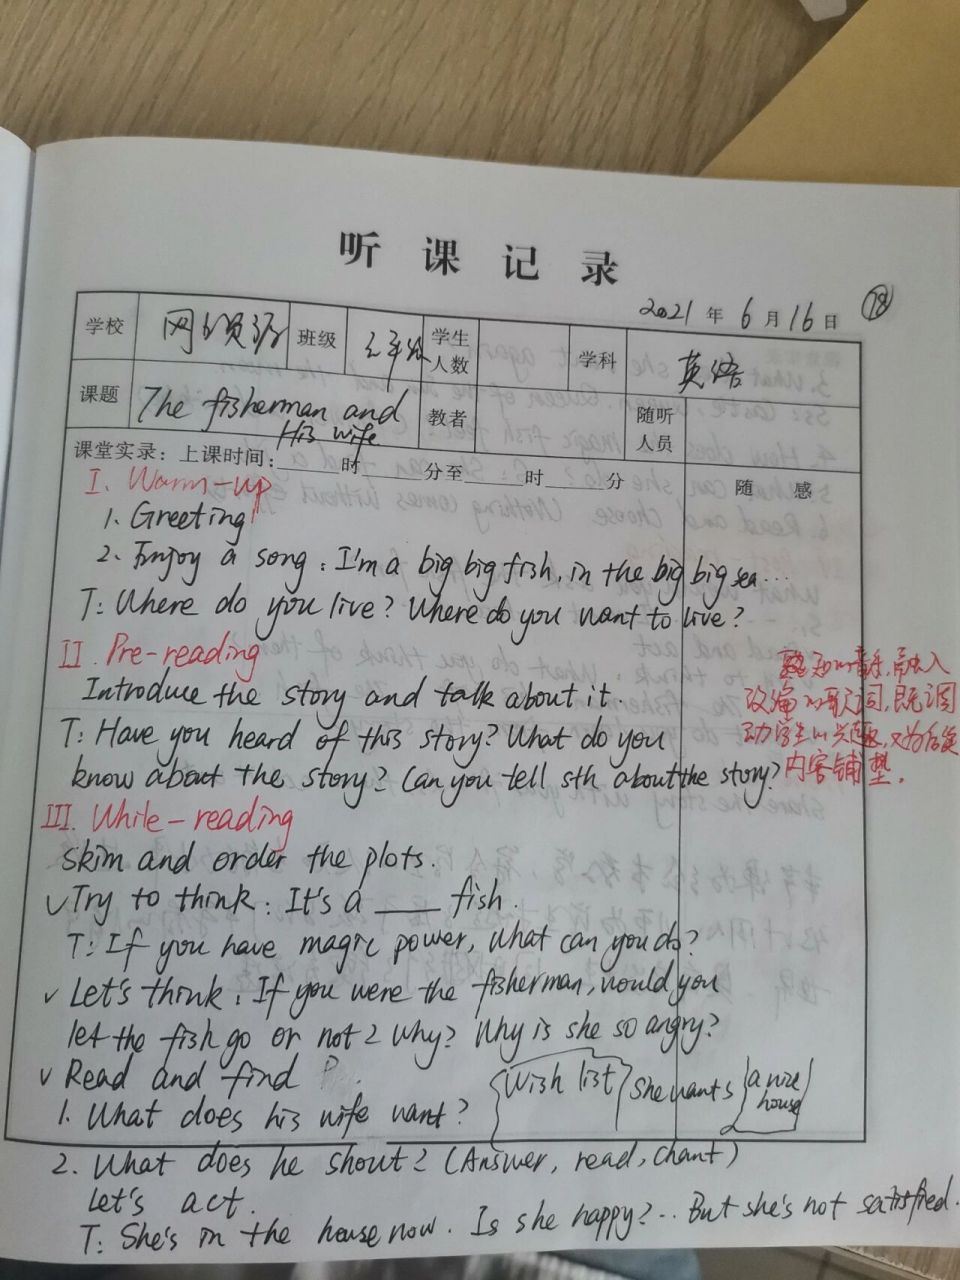 听课记录
2021年6月16日 78
学校 网络资源 班级 三年级 学生人数 学科 英语
课题 The fisherman and His wife 教者 随听人员
课堂实录：上课时间：____时____分至____时____分 随感
I. Warm-up
1. Greeting
2. Enjoy a song: I'm a big big fish, in the big big sea...
T: Where do you live? Where do you want to live?
II. Pre-reading
Introduce the story and talk about it.
T: Have you heard of this story? What do you
know about the story? Can you tell sth about the story?
熟知的音乐,融入
改编的歌词,既调
动学生的兴趣,又为后续
内容铺垫.
III. While-reading
skim and order the plots.
√Try to think: It's a ____ fish.
T: If you have magic power, what can you do?
√ Let's think: If you were the fisherman, would you
let the fish go or not? Why? Why is she so angry?
√ Read and find
Wish list She wants a nice house
1. What does his wife want?
2. What does he shout? (Answer, read, chant)
Let's act.
T: She's in the house now. Is she happy?... But she's not satisfied.